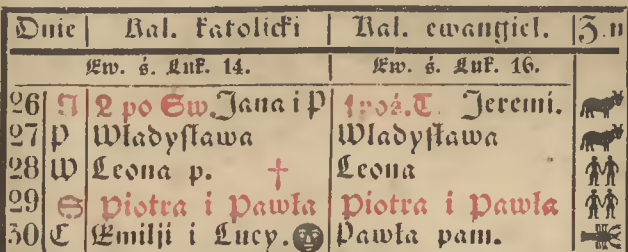 Dnie Kal. katolicki Kal. ewangiel. Z. n
Ew. ś. Łuk. 14. Ew. ś. Łuk. 16.
26 N 2 po Św. Jana i P Jeremi.
27 P Władysława Władysława
28 W Leona p. † Leona
29 S Piotra i Pawła Piotra i Pawła
30 C Emilji i Lucy. Pawła pam.